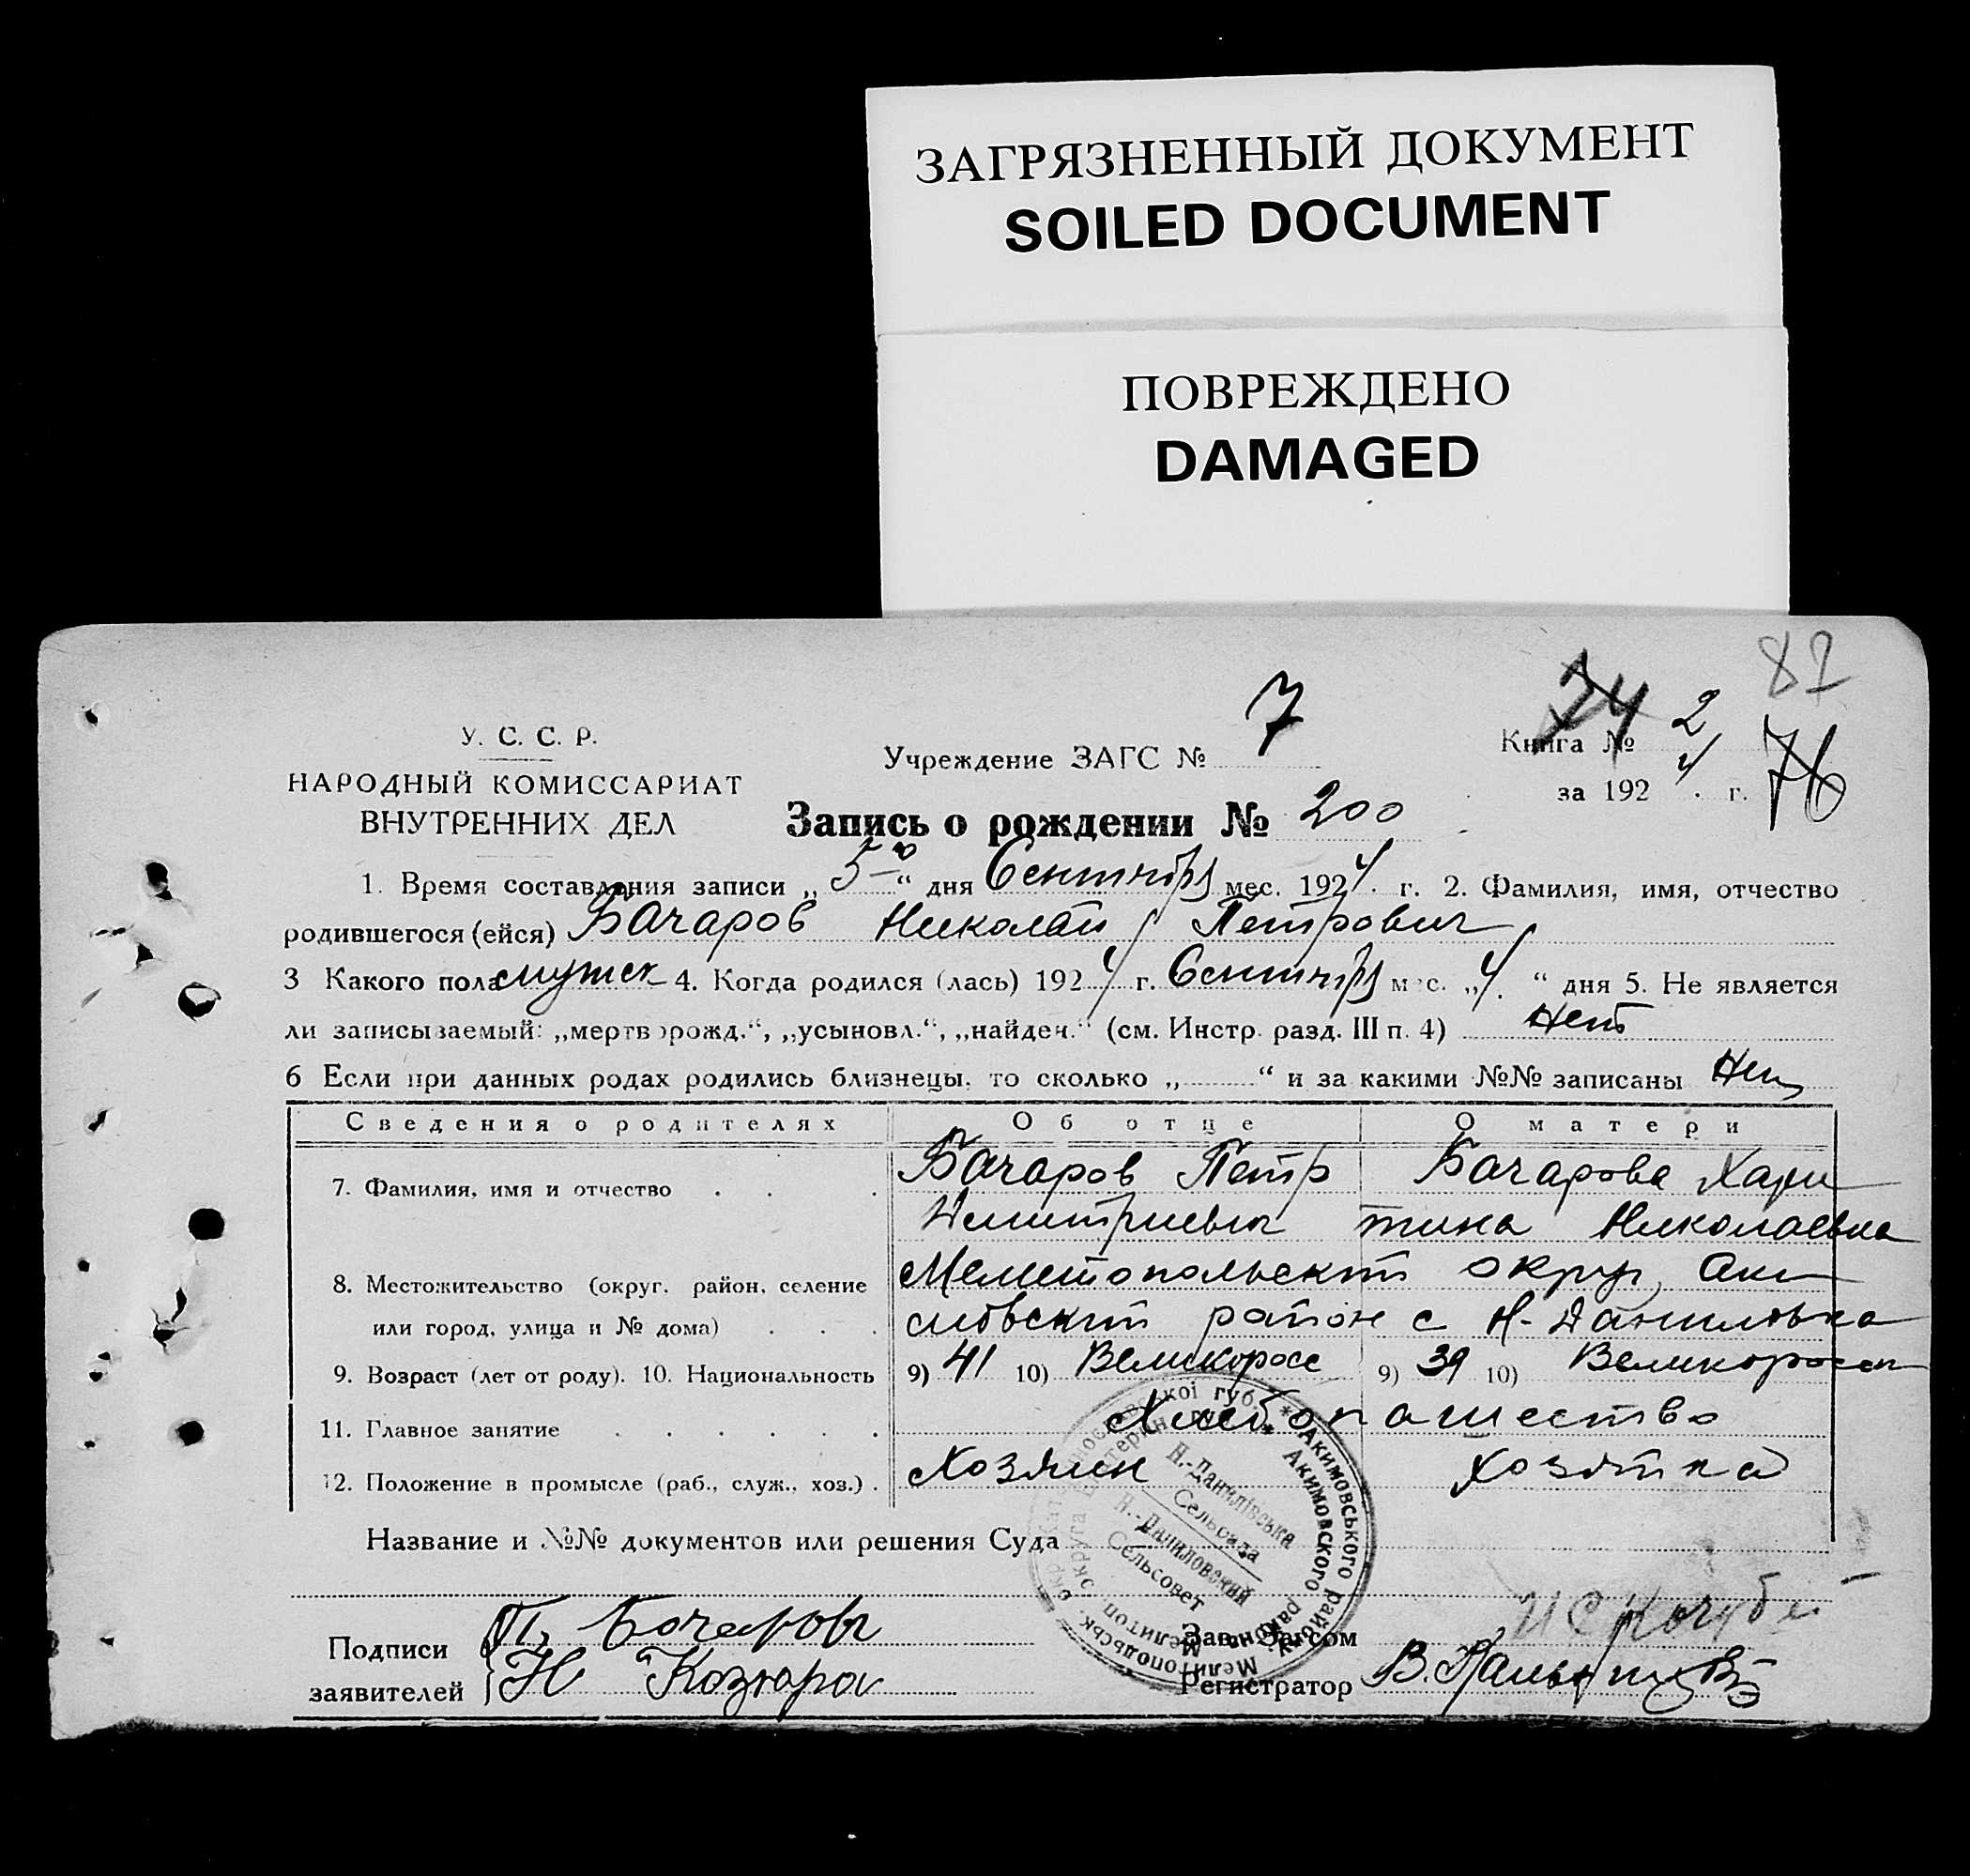 ЗАГРЯЗНЕННЫЙ ДОКУМЕНТ
SOILED DOCUMENT
ПОВРЕЖДЕНО
DAMAGED
87
74 2
У. С. С. Р.
НАРОДНЫЙ КОМИССАРИАТ
ВНУТРЕННИХ ДЕЛ
Учреждение ЗАГС № 7
Книга №
за 192 4 г. 76
Запись о рождении № 200
1. Время составления записи „ 5-го “ дня Сентября мес. 1924. г. 2. Фамилия, имя, отчество
родившегося (ейся) Бачаров Николай Петрович
3 Какого пола мужск 4. Когда родился (лась) 1924 г. Сентября мес. „4. “ дня 5. Не является
ли записываемый: „мертворожд.“, „усыновл.“, „найден.“ (см. Инстр. разд. III п. 4) Нет
6 Если при данных родах родились близнецы, то сколько „ “ и за какими №№ записаны Нет
Сведения о родителях Об отце О матери
7. Фамилия, имя и отчество . . . Бачаров Петр Бачарова Хари
Димитриевич тина Николаевна
8. Местожительство (округ, район, селение Мелитопольский округ, Аки
или город, улица и № дома) . . . мовский район с Н-Даниловка
9. Возраст (лет от роду). 10. Национальность 9) 41 10) Великоросс 9) 39 10) Великоросска
11. Главное занятие . . . . . . Хлебопашество
12. Положение в промысле (раб., служ., хоз.) . Хозяин Хозяйка
Название и №№ документов или решения Суда
Акимовського району
Акимовского района
Н.-Данилівська
Сельрада
Н.-Даниловский
Сельсовет
Подписи П. Бочаров
заявителей Н Козюра
Зав. Загсом
Регистратор